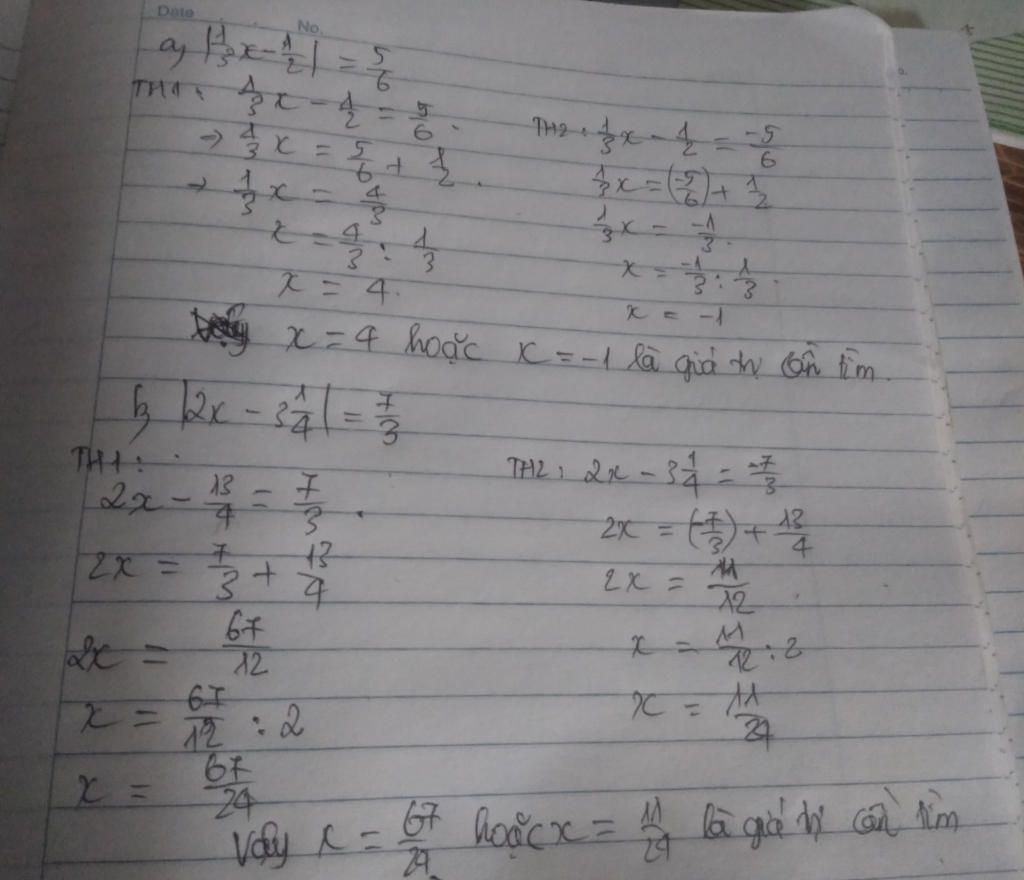 Date No.
a, |1/3 x - 1/2| = 5/6
TH1: 1/3 x - 1/2 = 5/6.
→ 1/3 x = 5/6 + 1/2.
→ 1/3 x = 4/3
x = 4/3 : 1/3
x = 4.
TH2: 1/3 x - 1/2 = -5/6
1/3 x = (-5/6) + 1/2
1/3 x = -1/3.
x = -1/3 : 1/3.
x = -1
x = 4 hoặc x = -1 là giá trị cần tìm.
b, |2x - 3 1/4| = 7/3
TH1:
2x - 13/4 = 7/3.
2x = 7/3 + 13/4
2x = 67/12
x = 67/12 : 2
x = 67/24
TH2: 2x - 3 1/4 = -7/3
2x = (-7/3) + 13/4
2x = 11/12
x = 11/12 : 2
x = 11/24
Vậy x = 67/24 hoặc x = 11/24 là giá trị cần tìm